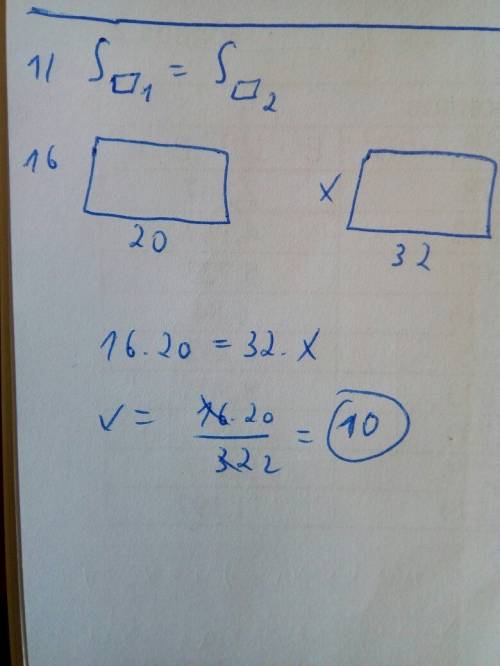 1) S□1 = S□2
16 x
20 32
16·20 = 32·x
x = 16·20 / 32 2 = 10